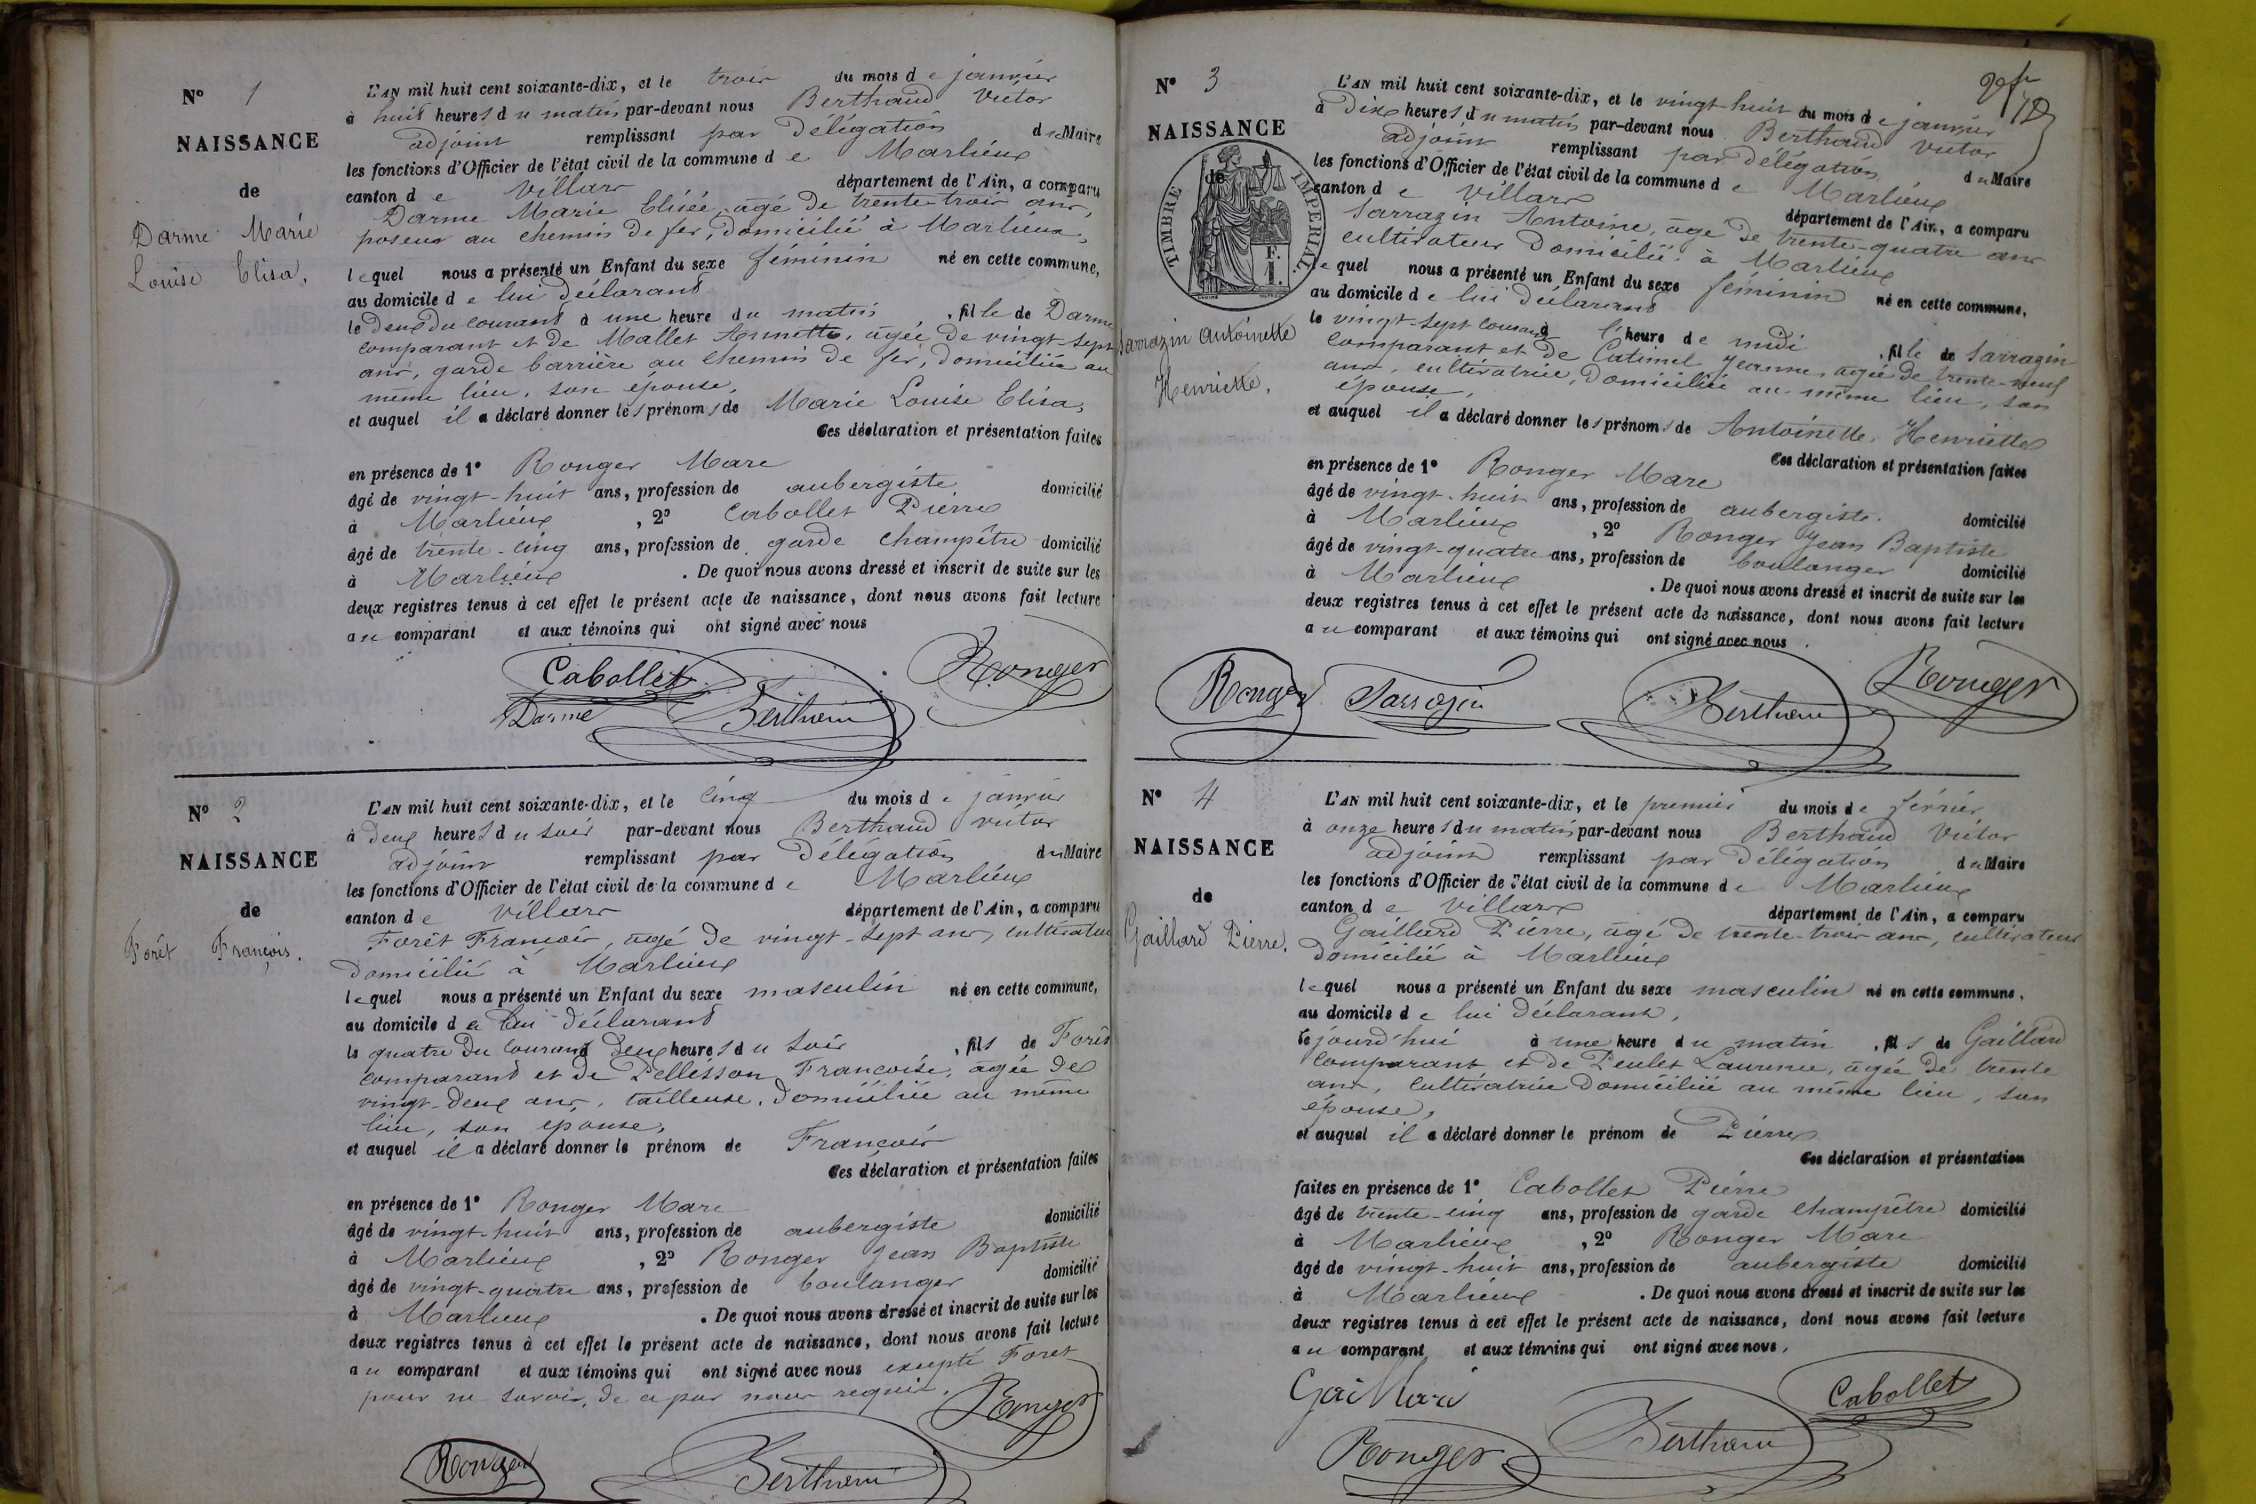 N° 1
NAISSANCE
de
Darme Marie
Louise Elisa.
L'AN mil huit cent soixante-dix, et le trois du mois de janvier
à huit heures du matin par-devant nous Berthaud Victor
adjoint remplissant par délégation du Maire
les fonctions d'Officier de l'état civil de la commune de Marlieux
canton de Villars département de l'Ain, a comparu
Darme Marie Elisée, agé de trente-trois ans,
poseur au chemin de fer, domicilié à Marlieux,
lequel nous a présenté un Enfant du sexe féminin né en cette commune,
au domicile de lui déclarant
le deux du courant à une heure du matin, fille de Darme
comparant et de Mallet Annette, agée de vingt-sept
ans, garde barrière au chemin de fer, domiciliée au
même lieu, son épouse,
et auquel il a déclaré donner les prénoms de Marie Louise Elisa,
Ces déclaration et présentation faites
en présence de 1° Ronger Marc
âgé de vingt-huit ans, profession de aubergiste domicilié
à Marlieux, 2° Cabollet Pierre
âgé de trente-cinq ans, profession de garde champêtre domicilié
à Marlieux. De quoi nous avons dressé et inscrit de suite sur les
deux registres tenus à cet effet le présent acte de naissance, dont nous avons fait lecture
au comparant et aux témoins qui ont signé avec nous
Cabollet Ronger
Darme Berthaud
N° 2
NAISSANCE
de
Forêt François.
L'AN mil huit cent soixante-dix, et le cinq du mois de janvier
à deux heures du soir par-devant nous Berthaud Victor
adjoint remplissant par délégation du Maire
les fonctions d'Officier de l'état civil de la commune de Marlieux
canton de Villars département de l'Ain, a comparu
Forêt François, agé de vingt-sept ans, cultivateur
domicilié à Marlieux
lequel nous a présenté un Enfant du sexe masculin né en cette commune,
au domicile de lui déclarant
le quatre du courant deux heures du soir, fils de Forêt
comparant et de Pellisson Françoise, agée de
vingt-deux ans, tailleuse, domiciliée au même
lieu, son épouse,
et auquel il a déclaré donner le prénom de François
Ces déclaration et présentation faites
en présence de 1° Ronger Marc
âgé de vingt-huit ans, profession de aubergiste domicilié
à Marlieux, 2° Ronger Jean Baptiste
âgé de vingt-quatre ans, profession de boulanger domicilié
à Marlieux. De quoi nous avons dressé et inscrit de suite sur les
deux registres tenus à cet effet le présent acte de naissance, dont nous avons fait lecture
au comparant et aux témoins qui ont signé avec nous excepté Foret
pour ne savoir, de ce par nous requis.
Ronger
Ronger Berthaud
N° 3
NAISSANCE
de
TIMBRE IMPERIAL.
F.
1.
Sarrazin Antoinette
Henriette.
L'AN mil huit cent soixante-dix, et le vingt-huit du mois de janvier
à dix heures du matin par-devant nous Berthaud Victor
adjoint remplissant par délégation du Maire
les fonctions d'Officier de l'état civil de la commune de Marlieux
canton de Villars département de l'Ain, a comparu
Sarrazin Antoine, age de trente-quatre ans
cultivateur domicilié à Marlieux
lequel nous a présenté un Enfant du sexe féminin né en cette commune,
au domicile de lui déclarant
le vingt-sept courant à l'heure de midi, fille de Sarrazin
comparant et de Catimel Jeanne, agée de trente-neuf
ans, cultivatrice, domiciliée au même lieu, son
épouse,
et auquel il a déclaré donner les prénoms de Antoinette, Henriette
Ces déclaration et présentation faites
en présence de 1° Ronger Marc
âgé de vingt-huit ans, profession de aubergiste. domicilié
à Marlieux, 2° Ronger Jean Baptiste
âgé de vingt-quatre ans, profession de boulanger domicilié
à Marlieux. De quoi nous avons dressé et inscrit de suite sur les
deux registres tenus à cet effet le présent acte de naissance, dont nous avons fait lecture
au comparant et aux témoins qui ont signé avec nous.
Ronger Sarrazin Berthaud Ronger
N° 4
NAISSANCE
de
Gaillard Pierre.
L'AN mil huit cent soixante-dix, et le premier du mois de février
à onze heures du matin par-devant nous Berthaud Victor
adjoint remplissant par délégation du Maire
les fonctions d'Officier de l'état civil de la commune de Marlieux
canton de Villars département de l'Ain, a comparu
Gaillard Pierre, agé de trente-trois ans, cultivateur
domicilié à Marlieux
lequel nous a présenté un Enfant du sexe masculin né en cette commune,
au domicile de lui déclarant,
cejourd'hui à une heure du matin, fils de Gaillard
comparant et de Peulet Laurence, agée de trente
ans, cultivatrice domiciliée au même lieu, son
épouse,
et auquel il a déclaré donner le prénom de Pierre
Ces déclaration et présentation
faites en présence de 1° Cabollet Pierre
âgé de trente-cinq ans, profession de garde champêtre domicilié
à Marlieux, 2° Ronger Marc
âgé de vingt-huit ans, profession de aubergiste domicilié
à Marlieux. De quoi nous avons dressé et inscrit de suite sur les
deux registres tenus à cet effet le présent acte de naissance, dont nous avons fait lecture
au comparant et aux témoins qui ont signé avec nous.
Gaillard Cabollet
Ronger Berthaud